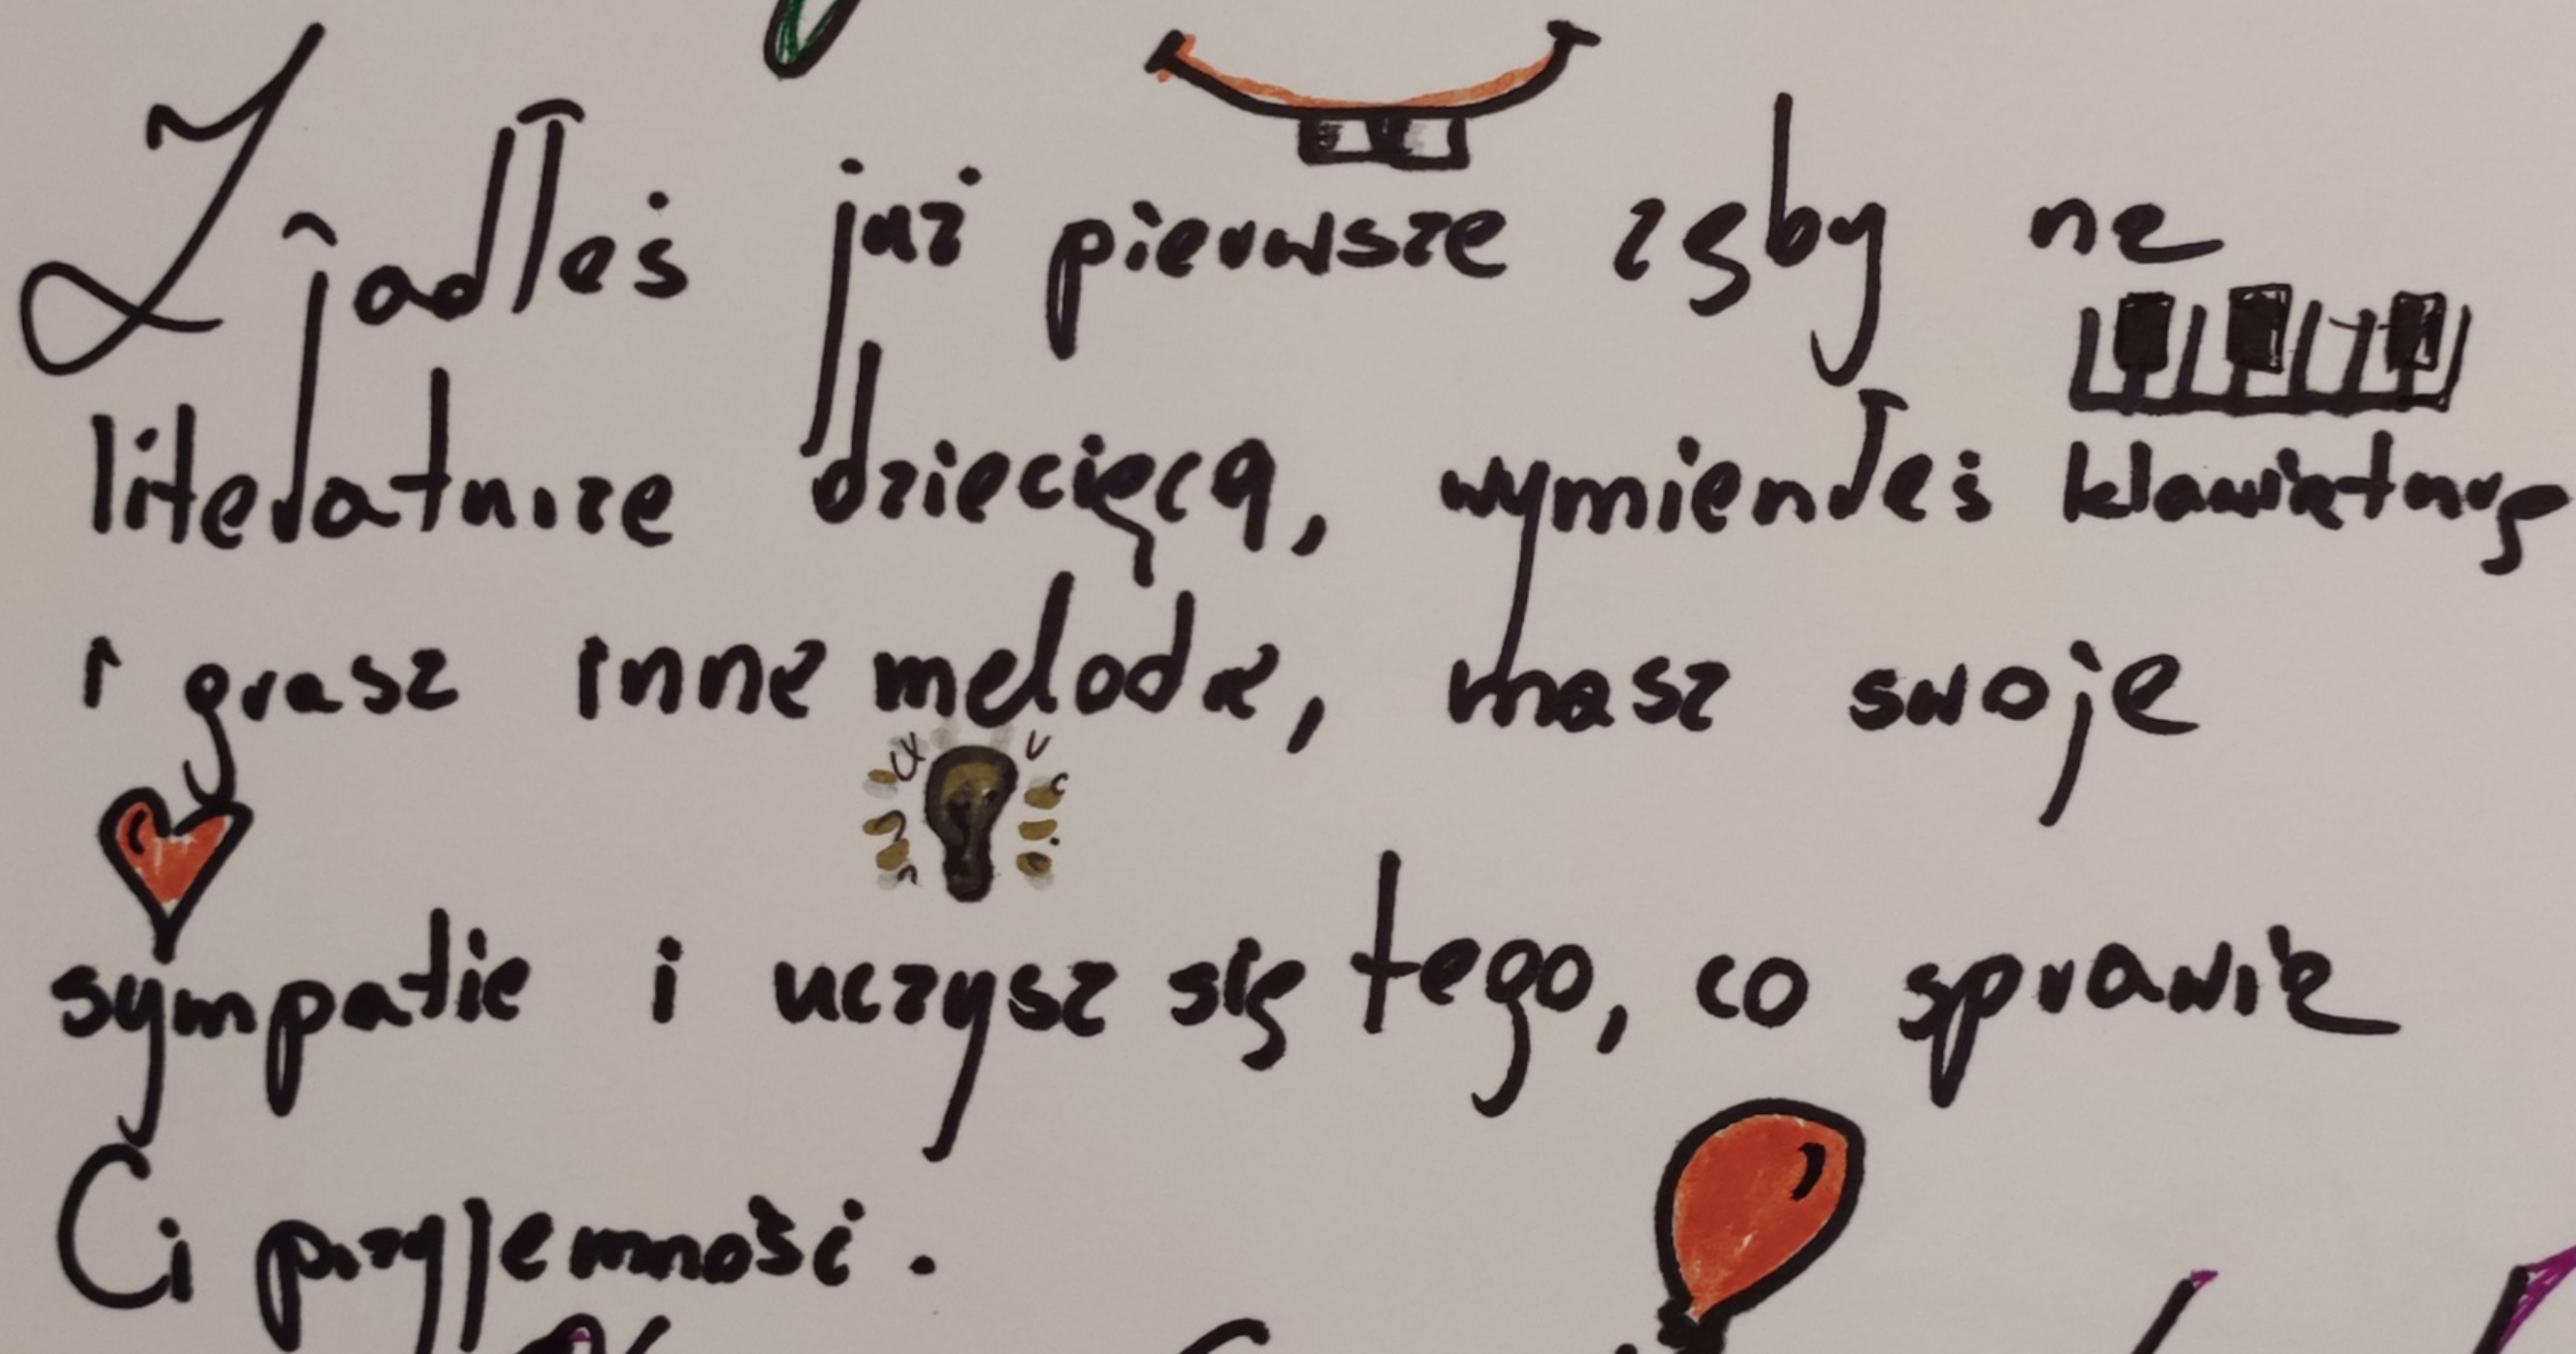 Zjadłeś już pierwsze zęby na
literaturze dziecięcą, wymieniłeś klawiaturę
i grasz inne melodie, masz swoje
sympatie i uczysz się tego, co sprawia
Ci przyjemność.